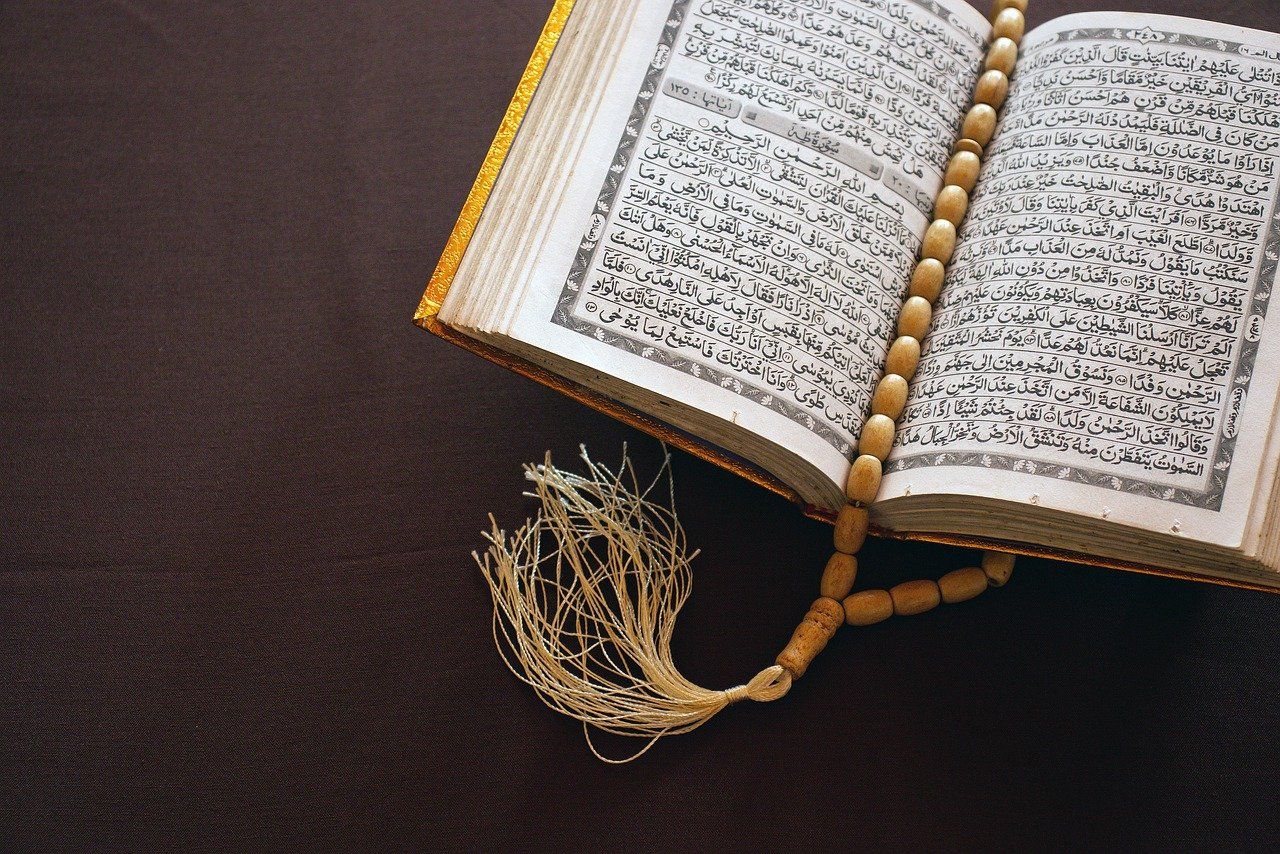 ٢٤٨
تُتْلٰى عَلَيْهِمْ اٰيٰتُنَا بَيِّنٰتٍ قَالَ الَّذِيْنَ كَفَرُوْا
اَيُّ الْفَرِيْقَيْنِ خَيْرٌ مَّقَامًا وَّاَحْسَنُ نَدِيًّا
اَهْلَكْنَا قَبْلَهُمْ مِّنْ قَرْنٍ هُمْ اَحْسَنُ اَثَاثًا
مَنْ كَانَ فِي الضَّلٰلَةِ فَلْيَمْدُدْ لَهُ الرَّحْمٰنُ مَدًّا
اِذَا رَاَوْا مَا يُوْعَدُوْنَ اِمَّا الْعَذَابَ وَاِمَّا السَّاعَةَ
مَنْ هُوَ شَرٌّ مَّكَانًا وَّاَضْعَفُ جُنْدًا وَيَزِيْدُ اللّٰهُ
اهْتَدَوْا هُدًى وَالْبٰقِيٰتُ الصّٰلِحٰتُ خَيْرٌ عِنْدَ رَبِّكَ
وَّخَيْرٌ مَّرَدًّا اَفَرَءَيْتَ الَّذِيْ كَفَرَ بِاٰيٰتِنَا وَقَالَ لَاُوْتَيَنَّ
وَّوَلَدًا اَطَّلَعَ الْغَيْبَ اَمِ اتَّخَذَ عِنْدَ الرَّحْمٰنِ عَهْدًا
سَنَكْتُبُ مَا يَقُوْلُ وَنَمُدُّ لَهٗ مِنَ الْعَذَابِ مَدًّا
يَقُوْلُ وَيَاْتِيْنَا فَرْدًا وَاتَّخَذُوْا مِنْ دُوْنِ اللّٰهِ اٰلِهَةً
لَهُمْ عِزًّا كَلَّا سَيَكْفُرُوْنَ بِعِبَادَتِهِمْ وَيَكُوْنُوْنَ عَلَيْهِمْ
اَلَمْ تَرَ اَنَّا اَرْسَلْنَا الشَّيٰطِيْنَ عَلَى الْكٰفِرِيْنَ تَؤُزُّهُمْ اَزًّا
تَعْجَلْ عَلَيْهِمْ اِنَّمَا نَعُدُّ لَهُمْ عَدًّا يَوْمَ نَحْشُرُ الْمُتَّقِيْنَ
الرَّحْمٰنِ وَفْدًا وَنَسُوْقُ الْمُجْرِمِيْنَ اِلٰى جَهَنَّمَ وِرْدًا
لَا يَمْلِكُوْنَ الشَّفَاعَةَ اِلَّا مَنِ اتَّخَذَ عِنْدَ الرَّحْمٰنِ عَهْدًا
وَقَالُوا اتَّخَذَ الرَّحْمٰنُ وَلَدًا لَقَدْ جِئْتُمْ شَيْئًا اِدًّا تَكَادُ
السَّمٰوٰتُ يَتَفَطَّرْنَ مِنْهُ وَتَنْشَقُّ الْاَرْضُ وَتَخِرُّ الْجِبَالُ هَدًّا
كُلُّ مَنْ فِي السَّمٰوٰتِ وَالْاَرْضِ
لَقَدْ اَحْصٰىهُمْ وَعَدَّهُمْ عَدًّا
اِنَّ الَّذِيْنَ اٰمَنُوْا وَعَمِلُوا الصّٰلِحٰتِ سَيَجْعَلُ
فَاِنَّمَا يَسَّرْنٰهُ بِلِسَانِكَ لِتُبَشِّرَ بِهِ
قَوْمًا لُّدًّا وَكَمْ اَهْلَكْنَا قَبْلَهُمْ مِّنْ قَرْنٍ
هَلْ تُحِسُّ مِنْهُمْ مِّنْ اَحَدٍ اَوْ تَسْمَعُ لَهُمْ رِكْزًا
اٰيَاتُهَا : ١٣٥
بِسْمِ اللّٰهِ الرَّحْمٰنِ الرَّحِيْمِ
اَنْزَلْنَا عَلَيْكَ الْقُرْاٰنَ لِتَشْقٰى اِلَّا تَذْكِرَةً لِّمَنْ يَّخْشٰى
مِّمَّنْ خَلَقَ الْاَرْضَ وَالسَّمٰوٰتِ الْعُلٰى اَلرَّحْمٰنُ عَلَى
اسْتَوٰى لَهٗ مَا فِي السَّمٰوٰتِ وَمَا فِي الْاَرْضِ وَمَا
وَمَا تَحْتَ الثَّرٰى وَاِنْ تَجْهَرْ بِالْقَوْلِ فَاِنَّهٗ يَعْلَمُ السِّرَّ
اَللّٰهُ لَا اِلٰهَ اِلَّا هُوَ لَهُ الْاَسْمَاءُ الْحُسْنٰى وَهَلْ اَتٰىكَ
مُوْسٰى اِذْ رَاٰ نَارًا فَقَالَ لِاَهْلِهِ امْكُثُوْا اِنِّيْ اٰنَسْتُ
اٰتِيْكُمْ مِّنْهَا بِقَبَسٍ اَوْ اَجِدُ عَلَى النَّارِ هُدًى فَلَمَّا
نُوْدِيَ يٰمُوْسٰى اِنِّيْ اَنَا رَبُّكَ فَاخْلَعْ نَعْلَيْكَ اِنَّكَ بِالْوَادِ
الْمُقَدَّسِ طُوًى وَاَنَا اخْتَرْتُكَ فَاسْتَمِعْ لِمَا يُوْحٰى